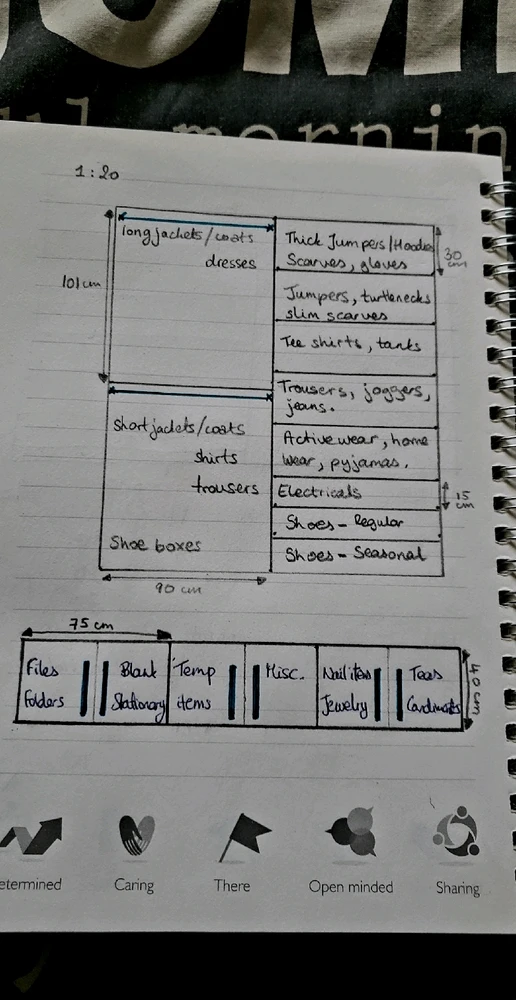 mornin
1:20
long jackets/coats
dresses
101 cm
Thick Jumpers/Hoodies
Scarves, gloves
30
cm
Jumpers, turtlenecks
slim scarves
Tee shirts, tanks
Trousers, joggers,
jeans.
Short jackets/coats
shirts
trousers
Shoe boxes
Activewear, home
wear, pyjamas.
Electricals
15
cm
Shoes - Regular
Shoes - Seasonal
90 cm
75 cm
Files
Folders
Blank
Stationary
Temp
items
Misc.
Nail items
Jewelry
Teas
40 cm
etermined
Caring
There
Open minded
Sharing